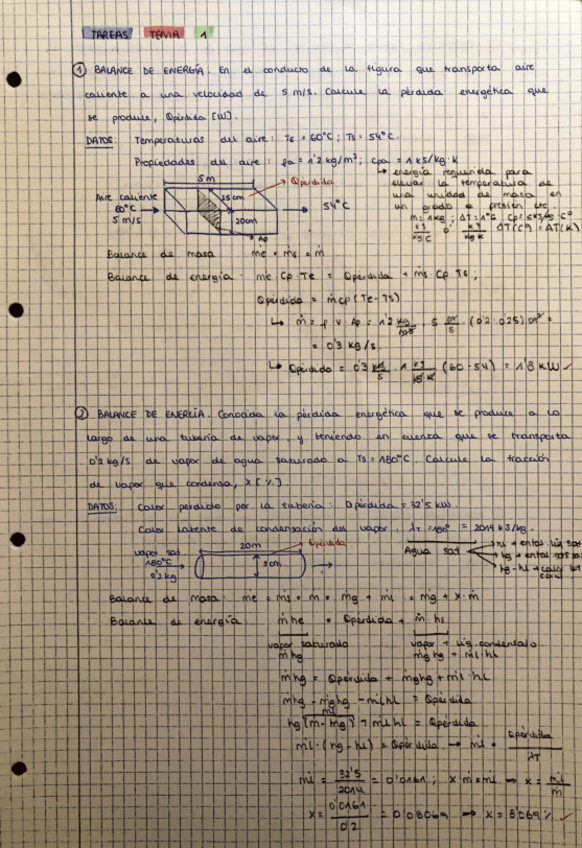 TAREAS TEMA 1
① BALANCE DE ENERGÍA. En el conducto de la figura que transporta aire
caliente a una velocidad de 5 m/s. Calcule la pérdida energética que
se produce, Qpérdida [W].
DATOS: Temperaturas del aire: Te = 60°C ; Ts = 54°C.
Propiedades del aire: ρa = 1'2 kg/m³; Cpa = 1 kJ/kg·K
↳ energía requerida para
elevar la temperatura de
una unidad de masa en
un grado a presión cte.
m = 1kg ; ΔT = 1°C
kJ/kg°C o kJ/kgK ΔT(C) = ΔT(K)
5 m
Qpérdida
Aire caliente
60°C
5 m/s
25cm
20cm
54°C
Ap
Balance de masa ṁe = ṁs = ṁ
Balance de energía: ṁe · Cp · Te = Qpérdida + ṁs · Cp · Ts ;
Qpérdida = ṁ cp (Te - Ts)
↳ ṁ = ρ · v · Ap = 1'2 kg/m³ · 5 m/s · (0'2 · 0'25) m² =
= 0'3 kg/s.
↳ Qpérdida = 0'3 kg/s · 1 kJ/kg·K (60 - 54) = 1'8 kW ✓
② BALANCE DE ENERGÍA. Conocida la pérdida energética que se produce a lo
largo de una tubería de vapor, y teniendo en cuenta que se transporta
0'2 kg/s de vapor de agua saturado a Ts = 180°C. Calcule la fracción
de vapor que condensa, x [%]
DATOS: Calor perdido por la tubería: Qpérdida = 32'5 kW.
Calor latente de condensación del vapor, λT = 180° = 2014 kJ/kg.
vapor sat.
180°C
0'2 kg
20m
Qpérdida
5cm
Agua sat
hl → ental. líq. sat
hg → ental. sat
hg - hl → calor lat
cond
Balance de masa: ṁe = ṁs = ṁ = ṁg + ṁl = ṁg + x · ṁ
Balance de energía: ṁ he = Qpérdida + ṁ hs
vapor saturado
ṁ hg
vapor + líq. condensado
ṁg hg + ṁl · hl
ṁhg = Qpérdida + ṁghg + ṁl · hl
ṁhg - ṁghg - ṁlhl = Qpérdida
ṁl
hg (ṁ - ṁg) - ṁl hl = Qpérdida
ṁl · (hg - hl) = Qpérdida → ṁl = Qpérdida/λT
ṁl = 32'5/2014 = 0'0161 ; x · ṁ = ṁl → x = ṁl/ṁ
x = 0'0161/0'2 = 0'08069 → x = 8'069 % ✓